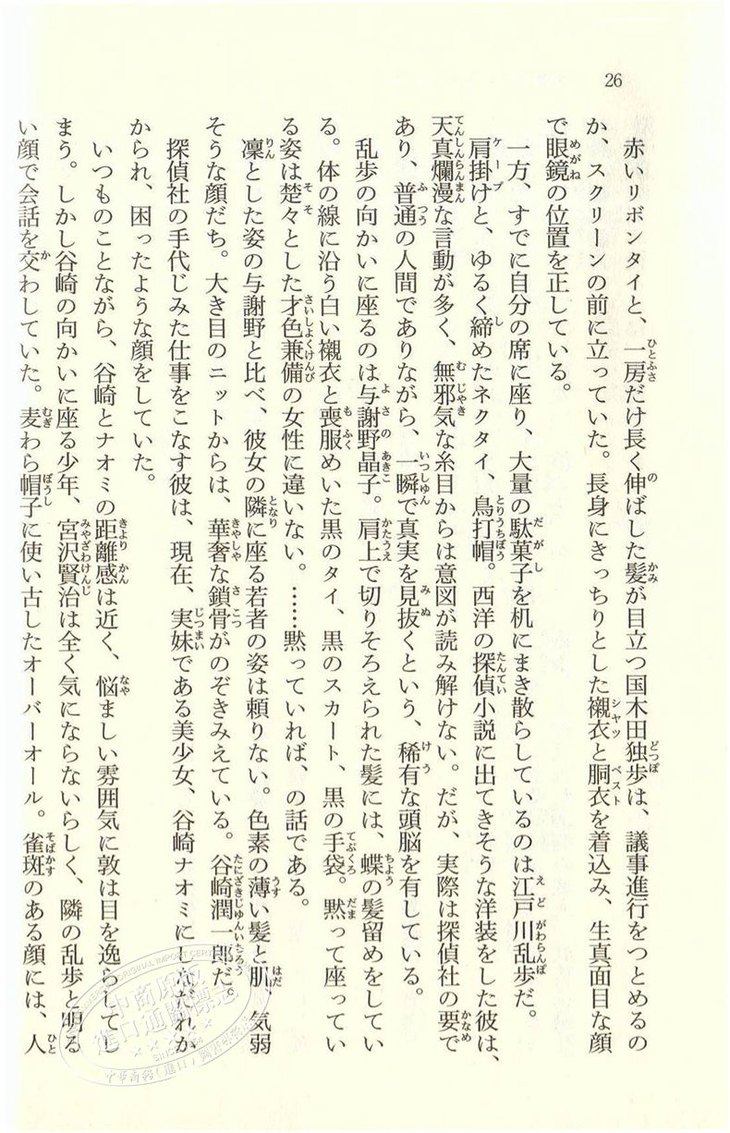 26
赤いリボンタイと、一房だけ長く伸ばした髪が目立つ国木田独歩は、議事進行をつとめるの
か、スクリーンの前に立っていた。長身にきっちりとした襯衣と胴衣を着込み、生真面目な顔
で眼鏡の位置を正している。
一方、すでに自分の席に座り、大量の駄菓子を机にまき散らしているのは江戸川乱歩だ。
肩掛けと、ゆるく締めたネクタイ、鳥打帽。西洋の探偵小説に出てきそうな洋装をした彼は、
天真爛漫な言動が多く、無邪気な糸目からは意図が読み解けない。だが、実際は探偵社の要で
あり、普通の人間でありながら、一瞬で真実を見抜くという、稀有な頭脳を有している。
乱歩の向かいに座るのは与謝野晶子。肩上で切りそろえられた髪には、蝶の髪留めをしてい
る。体の線に沿う白い襯衣と喪服めいた黒のタイ、黒のスカート、黒の手袋。黙って座ってい
る姿は楚々とした才色兼備の女性に違いない。……黙っていれば、の話である。
凜とした姿の与謝野と比べ、彼女の隣に座る若者の姿は頼りない。色素の薄い髪と肌、気弱
そうな顔だち。大き目のニットからは、華奢な鎖骨がのぞきみえている。谷崎潤一郎だ。
探偵社の手代じみた仕事をこなす彼は、現在、実妹である美少女、谷崎ナオミにしなだれか
かられ、困ったような顔をしていた。
いつものことながら、谷崎とナオミの距離感は近く、悩ましい雰囲気に敦は目を逸らしてし
まう。しかし谷崎の向かいに座る少年、宮沢賢治は全く気にならないらしく、隣の乱歩と明る
い顔で会話を交わしていた。麦わら帽子に使い古したオーバーオール。雀斑のある顔には、人
中商原版
進口通關標志
中華商務(進口)圖書專營